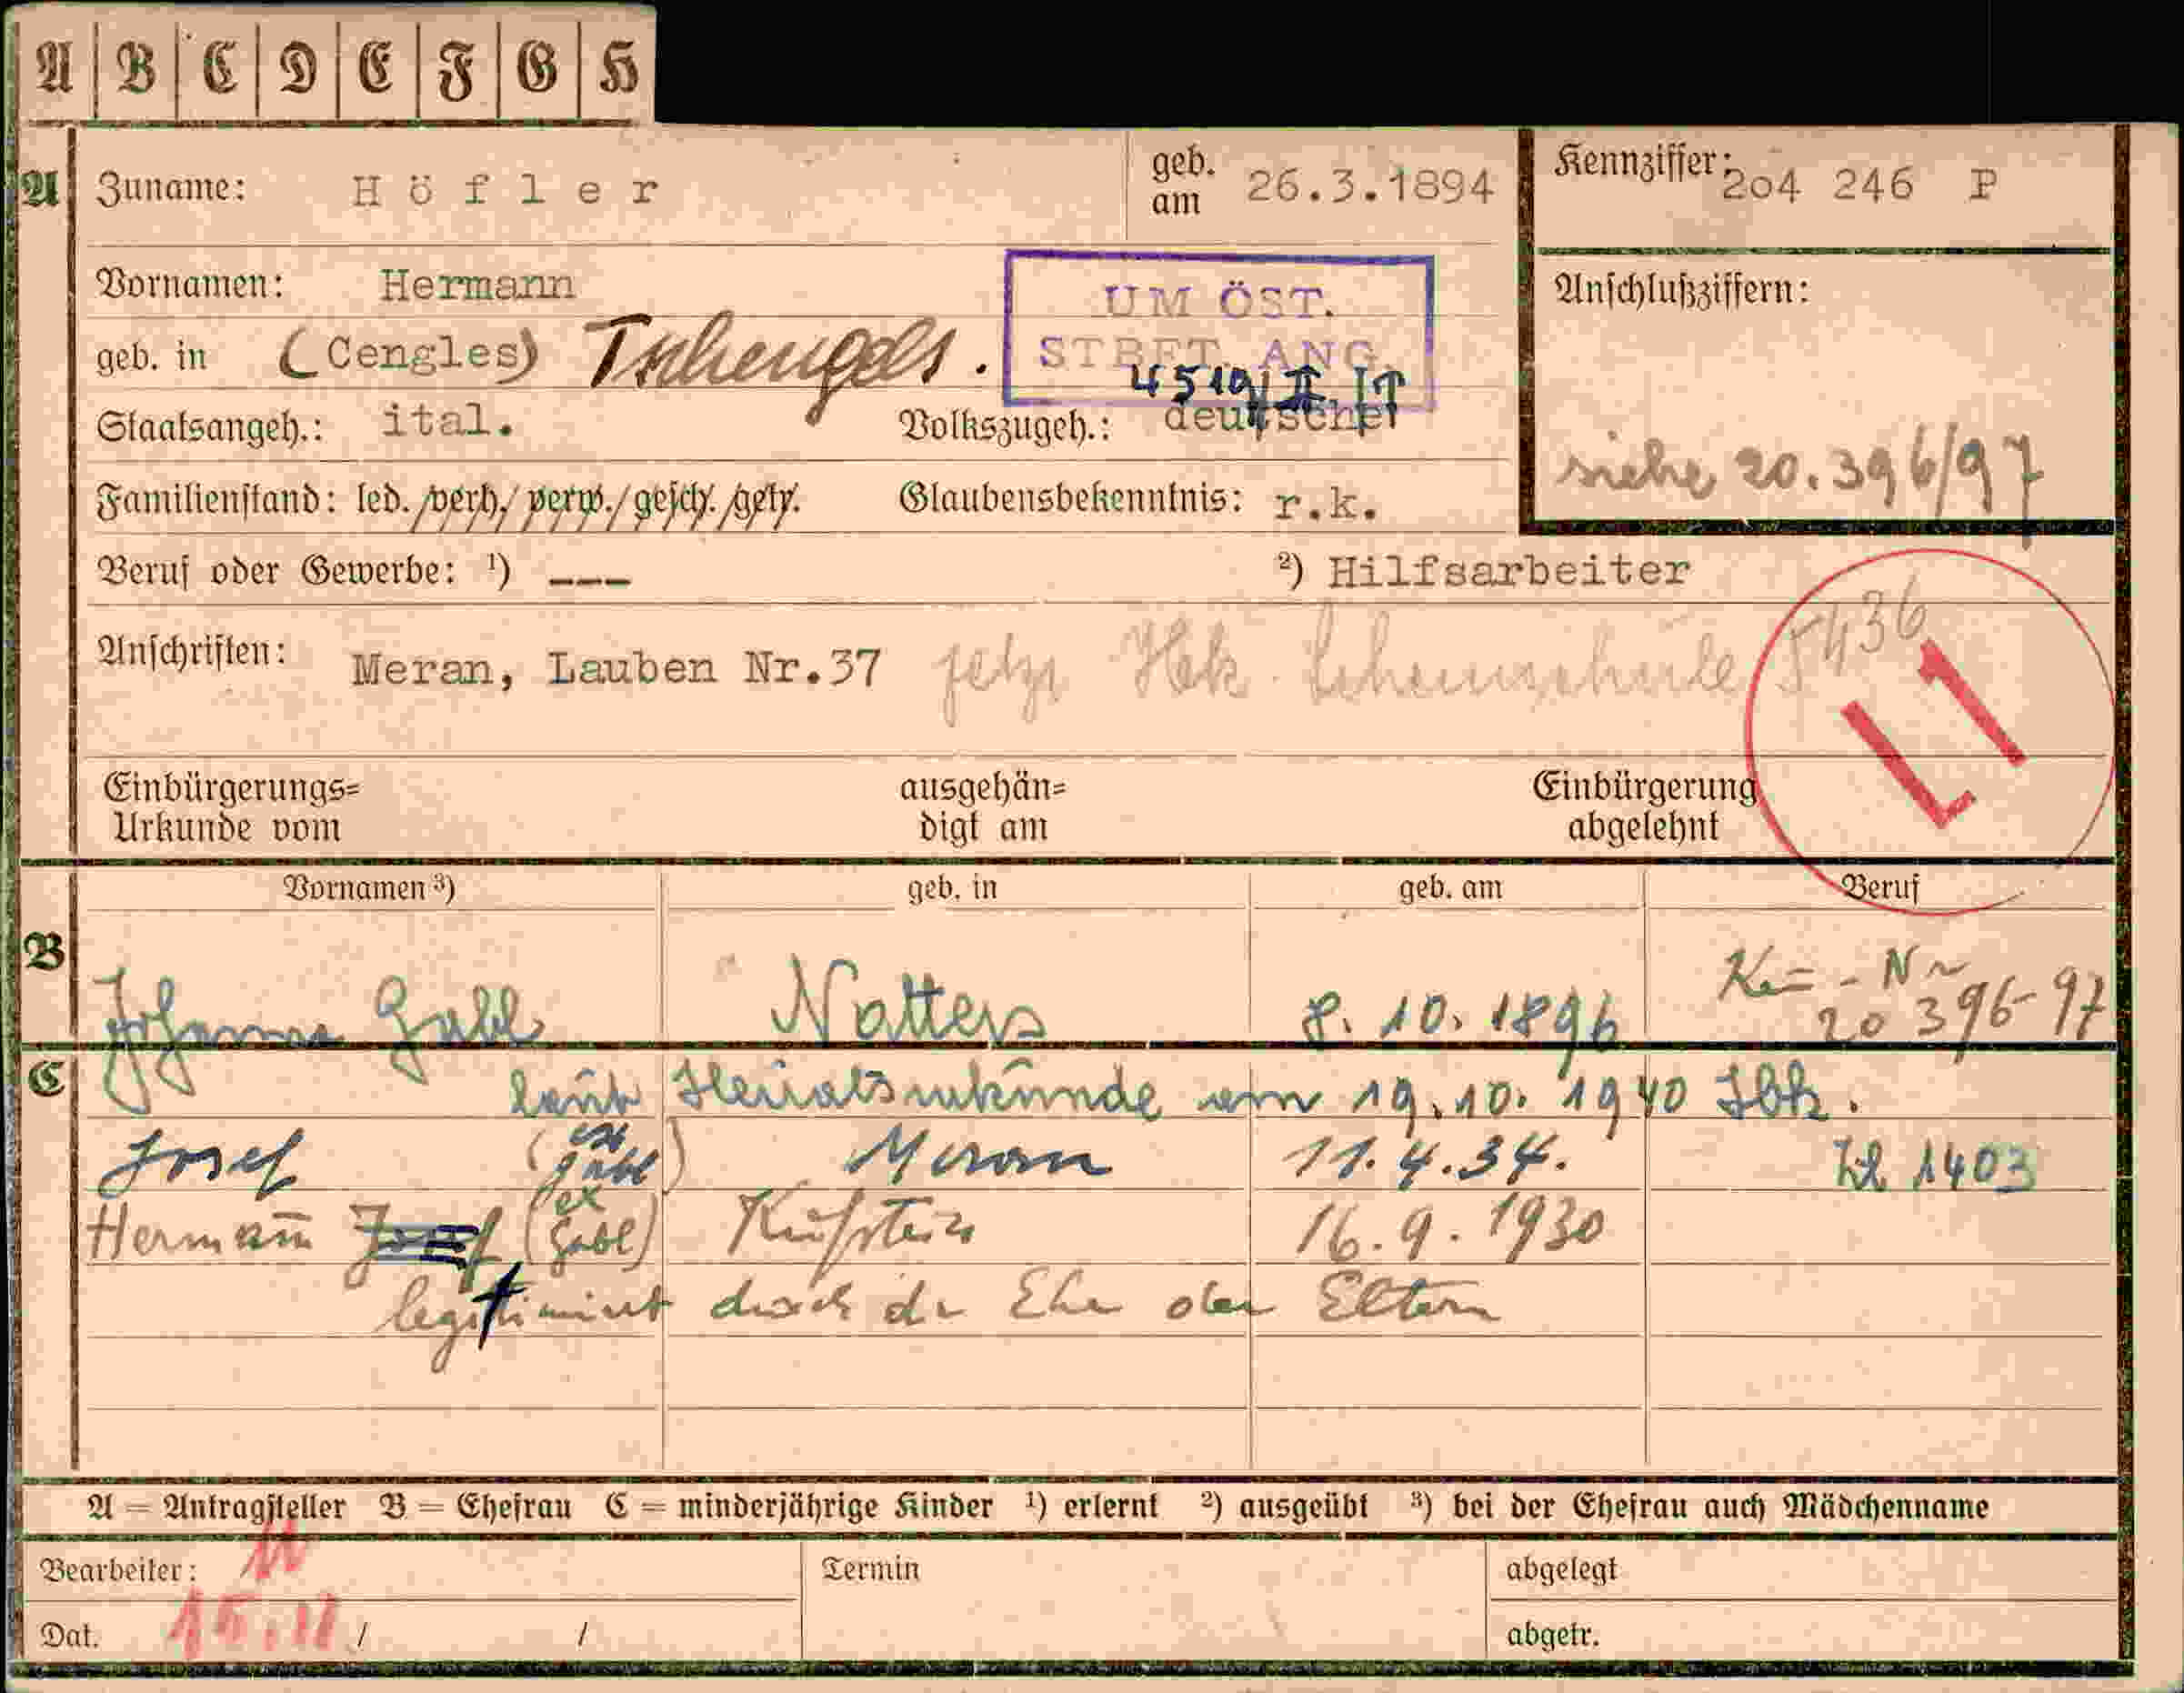 A B C D E F G H
A Zuname: Höfler geb. am 26.3.1894 Kennziffer: 204 246 P
Vornamen: Hermann
UM ÖST.
STBFT. ANG.
4519/II
Anschlußziffern:
geb. in (Cengles) Tschengels.
Staatsangeh.: ital. Volkszugeh.: deutscher
siehe 20.396/97
Familienstand: led./verh./verw./gesch./getr. Glaubensbekenntnis: r.k.
Beruf oder Gewerbe: ¹) --- ²) Hilfsarbeiter
Anschriften: Meran, Lauben Nr.37 jetzt
5436
L1
Einbürgerungs= Urkunde vom ausgehän= digt am Einbürgerung abgelehnt
Vornamen ³) geb. in geb. am Beruf
B Johanna Gabl Natters 8. 10. 1896 Nr 20 396-97
C laut Heiratsurkunde vom 19.10.1940 Ibk.
Josef (ex Gabl) Meran 11.4.34. Zl 1403
Hermann Josef (ex Gabl) Kufstein 16.9.1930
legitimiert durch die Ehe der Eltern
A = Antragsteller B = Ehefrau C = minderjährige Kinder ¹) erlernt ²) ausgeübt ³) bei der Ehefrau auch Mädchenname
Bearbeiter: Termin abgelegt
Dat. 15.11 / / abgetr.